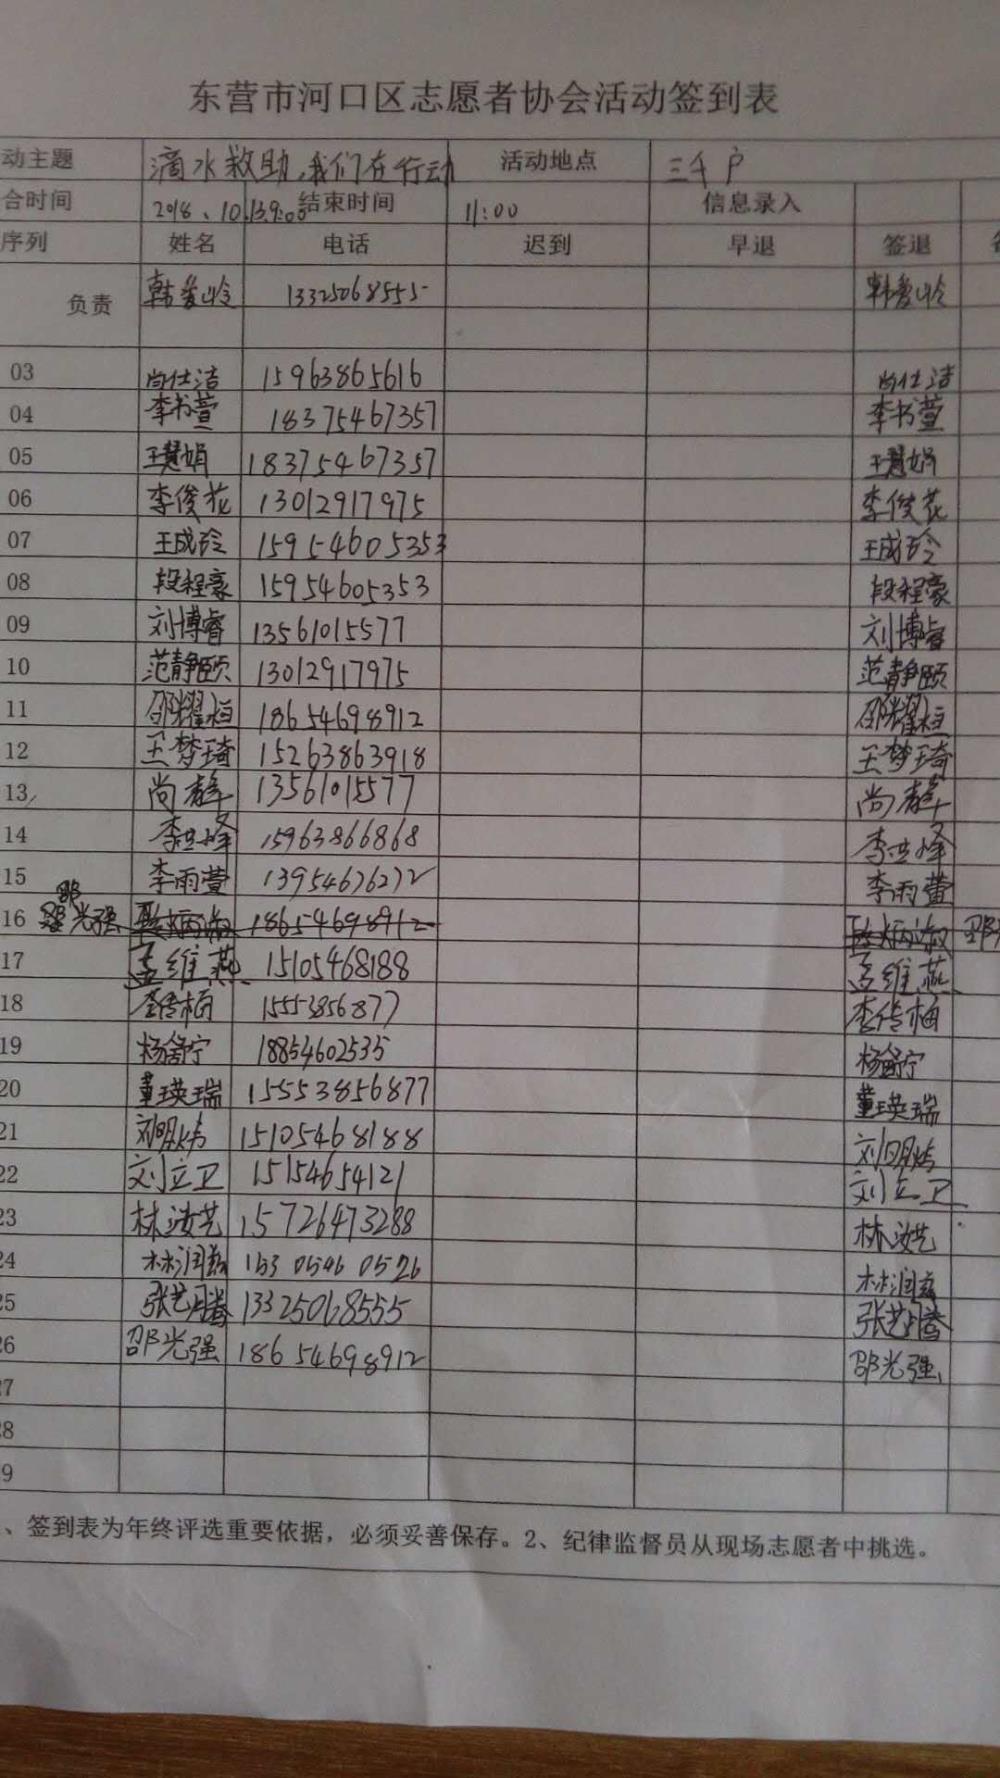 东营市河口区志愿者协会活动签到表
动主题 滴水救助,我们在行动 活动地点 三千户
合时间 2018、10.13.9:00 结束时间 11:00 信息录入
序列 姓名 电话 迟到 早退 签退
负责 韩爱玲 13325068555 韩爱玲
03 尚仕洁 15963865616 尚仕洁
04 李书萱 18375467357 李书萱
05 王慧娟 18375467357 王慧娟
06 李俊花 13012917975 李俊花
07 王成玲 15954605353 王成玲
08 段程豪 15954605353 段程豪
09 刘博睿 13561015577 刘博睿
10 范静颐 13012917975 范静颐
11 邵耀桓 18654698912 邵耀桓
12 王梦琦 15263863918 王梦琦
13 尚 13561015577 尚
14 李世峰 15963866868 李世峰
15 李雨萱 13954676272 李雨萱
16 邵光强 18654698912 邵
17 孟维燕 15105468188 孟维燕
18 李传梅 15553856877 李传梅
19 杨舒宁 18854602535 杨舒宁
20 董瑛瑞 15553856877 董瑛瑞
21 刘明炜 15105468188 刘明炜
22 刘立卫 15154654121 刘立卫
23 林汝艺 15726473288 林汝艺
24 林润 153 0546 0526 林润
25 张艺腾 13325068555 张艺腾
26 邵光强 18654698912 邵光强
27
28
29
、签到表为年终评选重要依据，必须妥善保存。2、纪律监督员从现场志愿者中挑选。